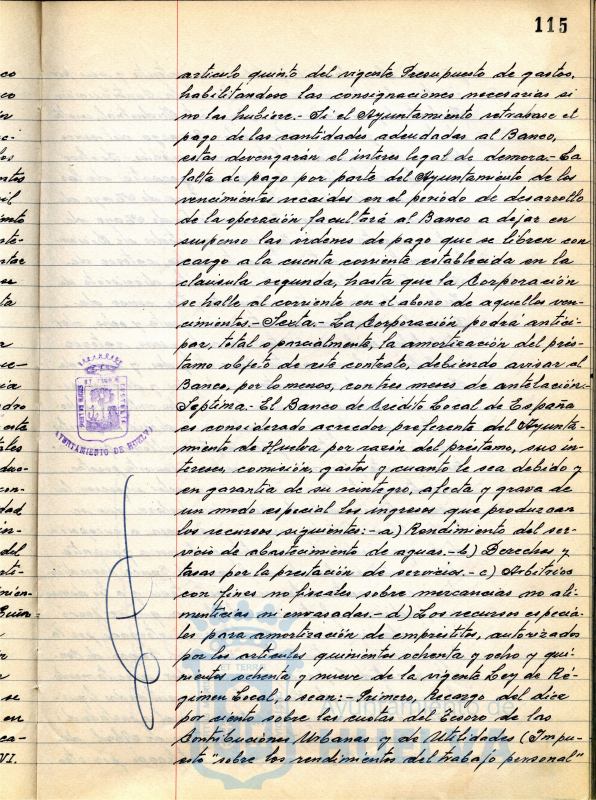 115
artículo quinto del vigente Presupuesto de gastos,
habilitandose las consignaciones necesarias si
no las hubiere.- Si el Ayuntamiento retrasase el
pago de las cantidades adeudadas al Banco,
estas devengarán el interes legal de demora.- La
falta de pago por parte del Ayuntamiento de los
vencimientos recaidos en el periódo de desarrollo
de la operación facultará al Banco a dejar en
suspenso las órdenes de pago que se libren con
cargo a la cuenta corriente establecida en la
clausula segunda, hasta que la Corporación
se halle al corriente en el abono de aquellos ven-
cimientos.- Sexta.- La Corporación podrá antici-
par, total o parcialmente, la amortización del prés-
tamo objeto de este contrato, debiendo avisar al
Banco, por lo menos, con tres meses de antelación.-
Septima.- El Banco de Crédito Local de España
es considerado acreedor preferente del Ayunta-
miento de Huelva por razón del préstamo, sus in-
tereses, comisión, gastos y cuanto le sea debido y
en garantia de su reintegro, afecta y grava de
un modo especial los ingresos que produzcan
los recursos siguientes:- a) Rendimiento del ser-
vicio de abastecimiento de aguas.- b) Derechos y
tasas por la prestación de servicios.- c) Arbitrios
con fines no fiscales sobre mercancias no ali-
menticias ni envasadas.- d) Los recursos especia-
les para amortización de empréstitos, autorizados
por los artículos quinientos ochenta y ocho y qui-
nientos ochenta y nueve de la vigente Ley de Ré-
gimen Local, o sean:- Primero, Recargo del diez
por ciento sobre las cuotas del Tesoro de las
Contribuciones Urbanas y de Utilidades (Impu-
esto "sobre los rendimientos del trabajo personal"
AYUNTAMIENTO DE HUELVA
ET TERRA
Ayuntamiento de
HUELVA